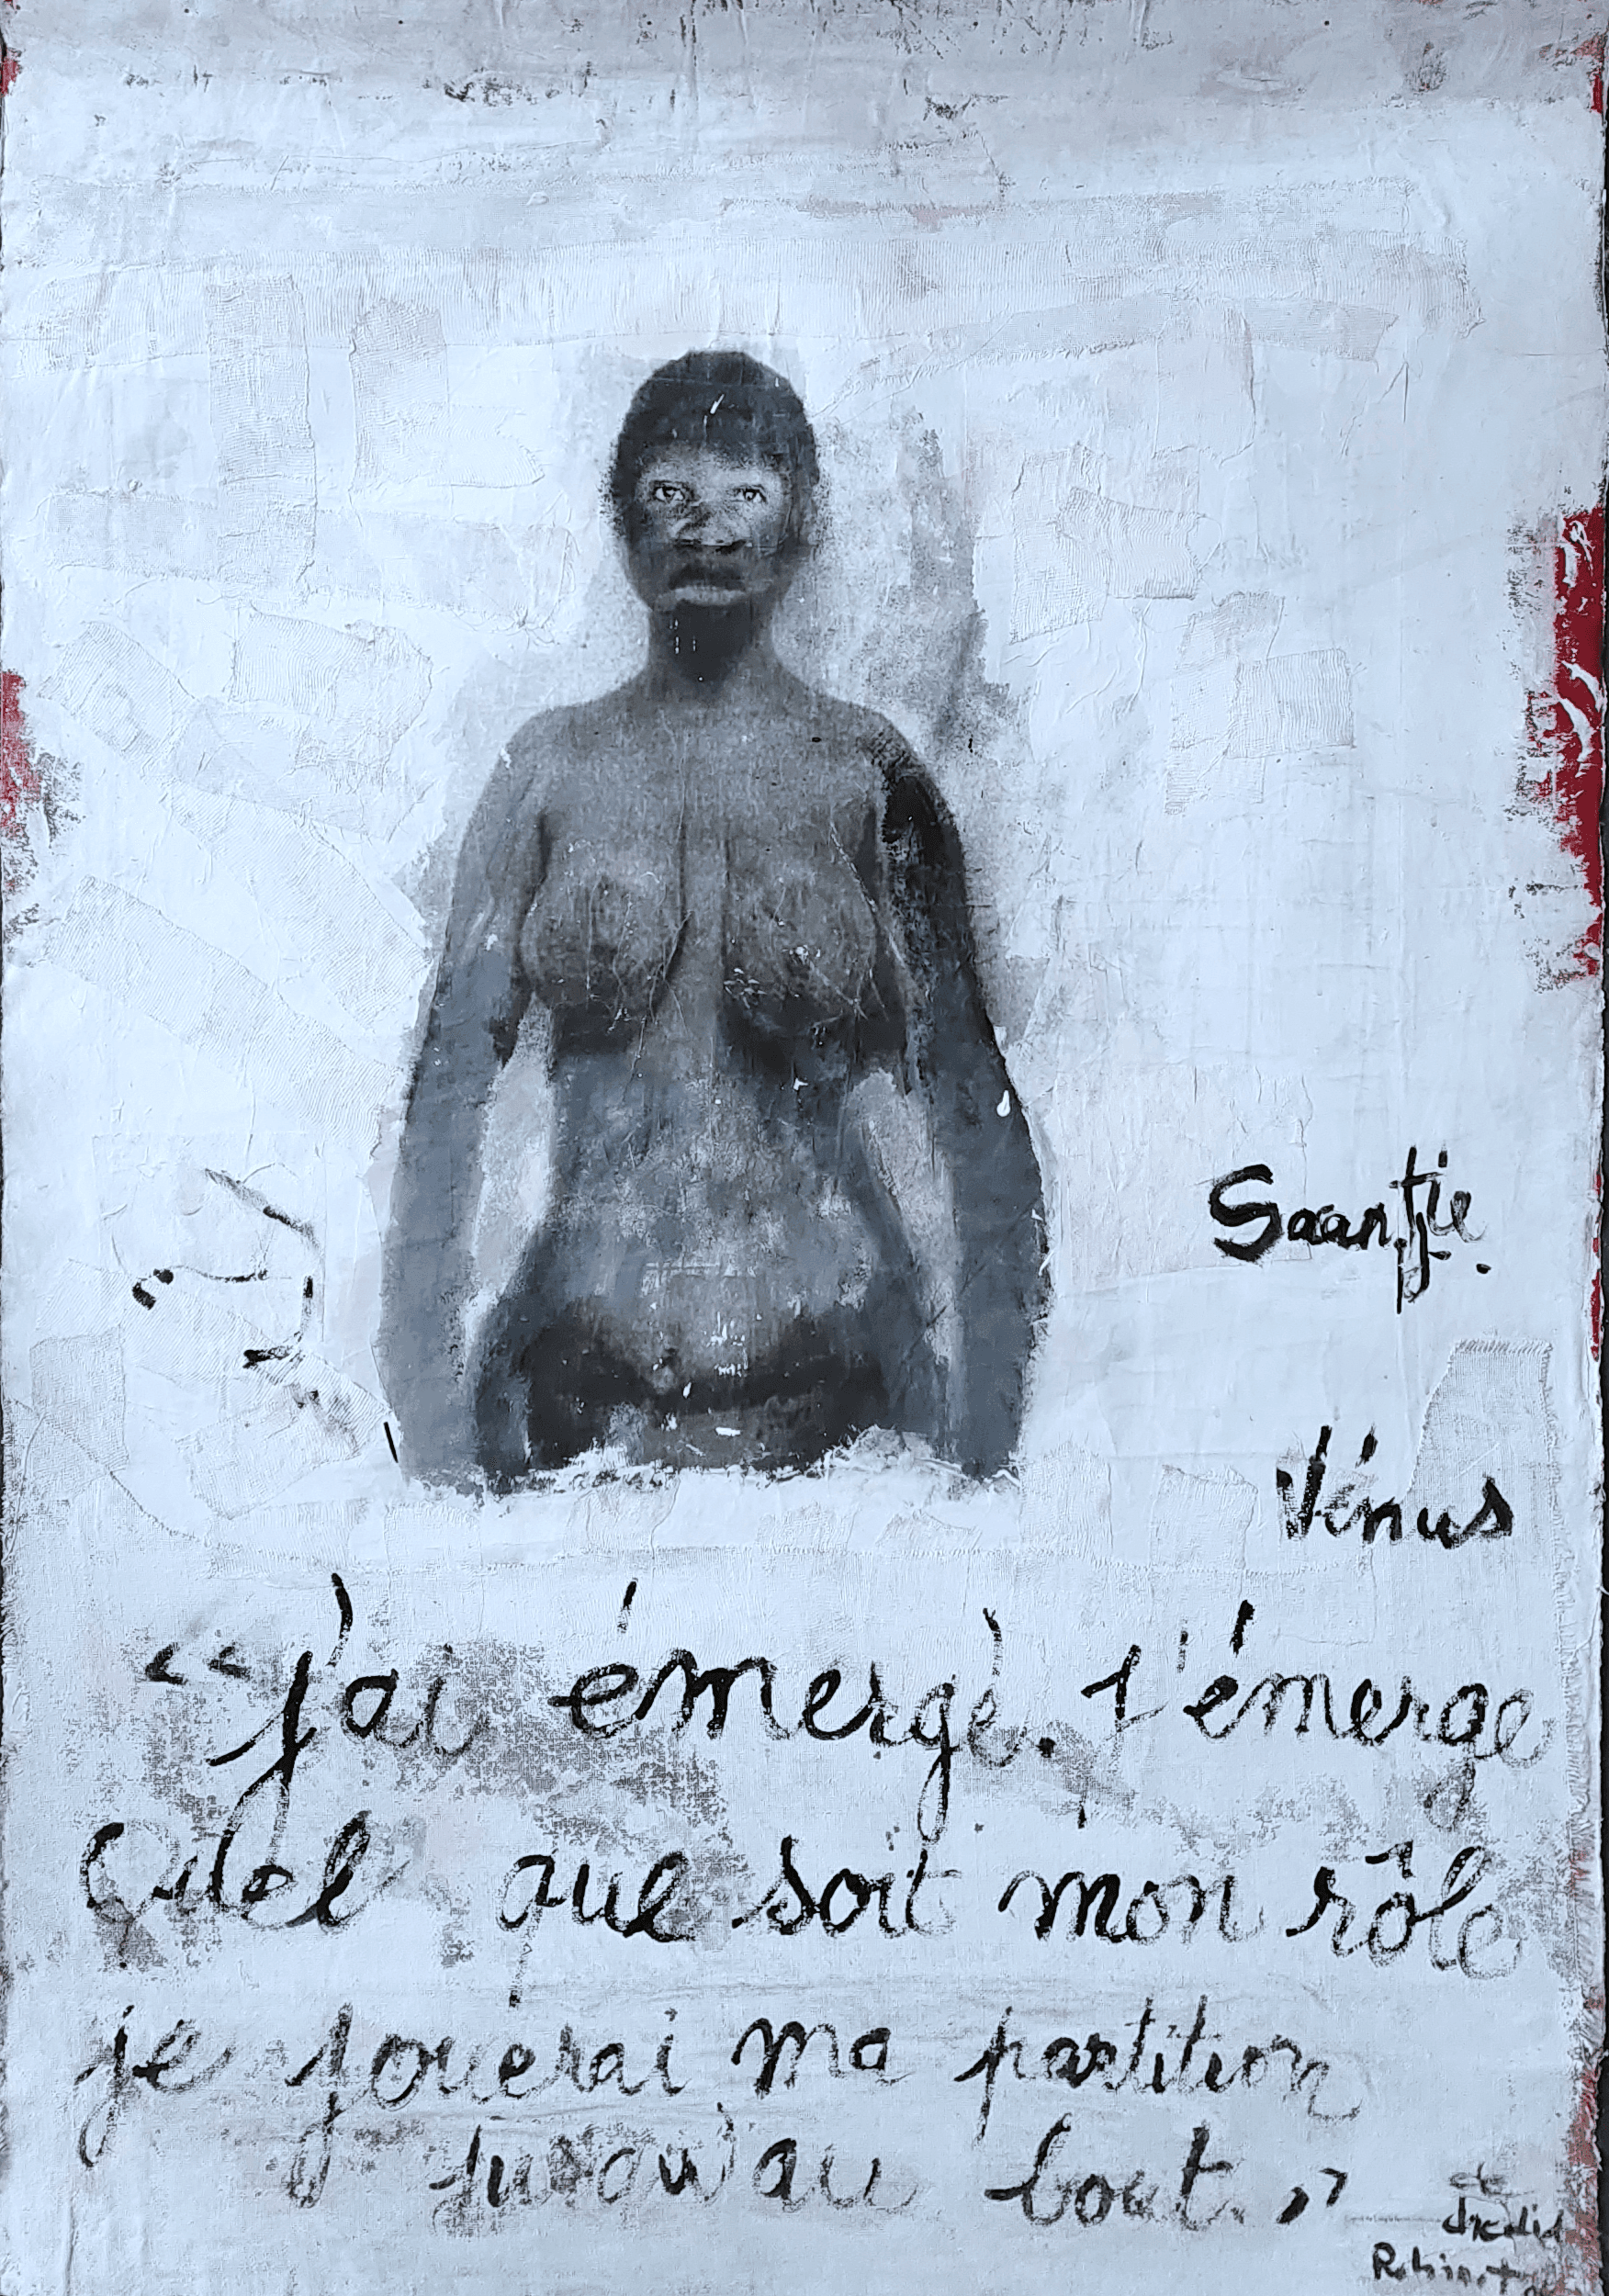 Saantjie.
Vénus
"j'ai émergé. J'émerge
Quel que soit mon rôle
je jouerai ma partition
jusqu'au bout."
de